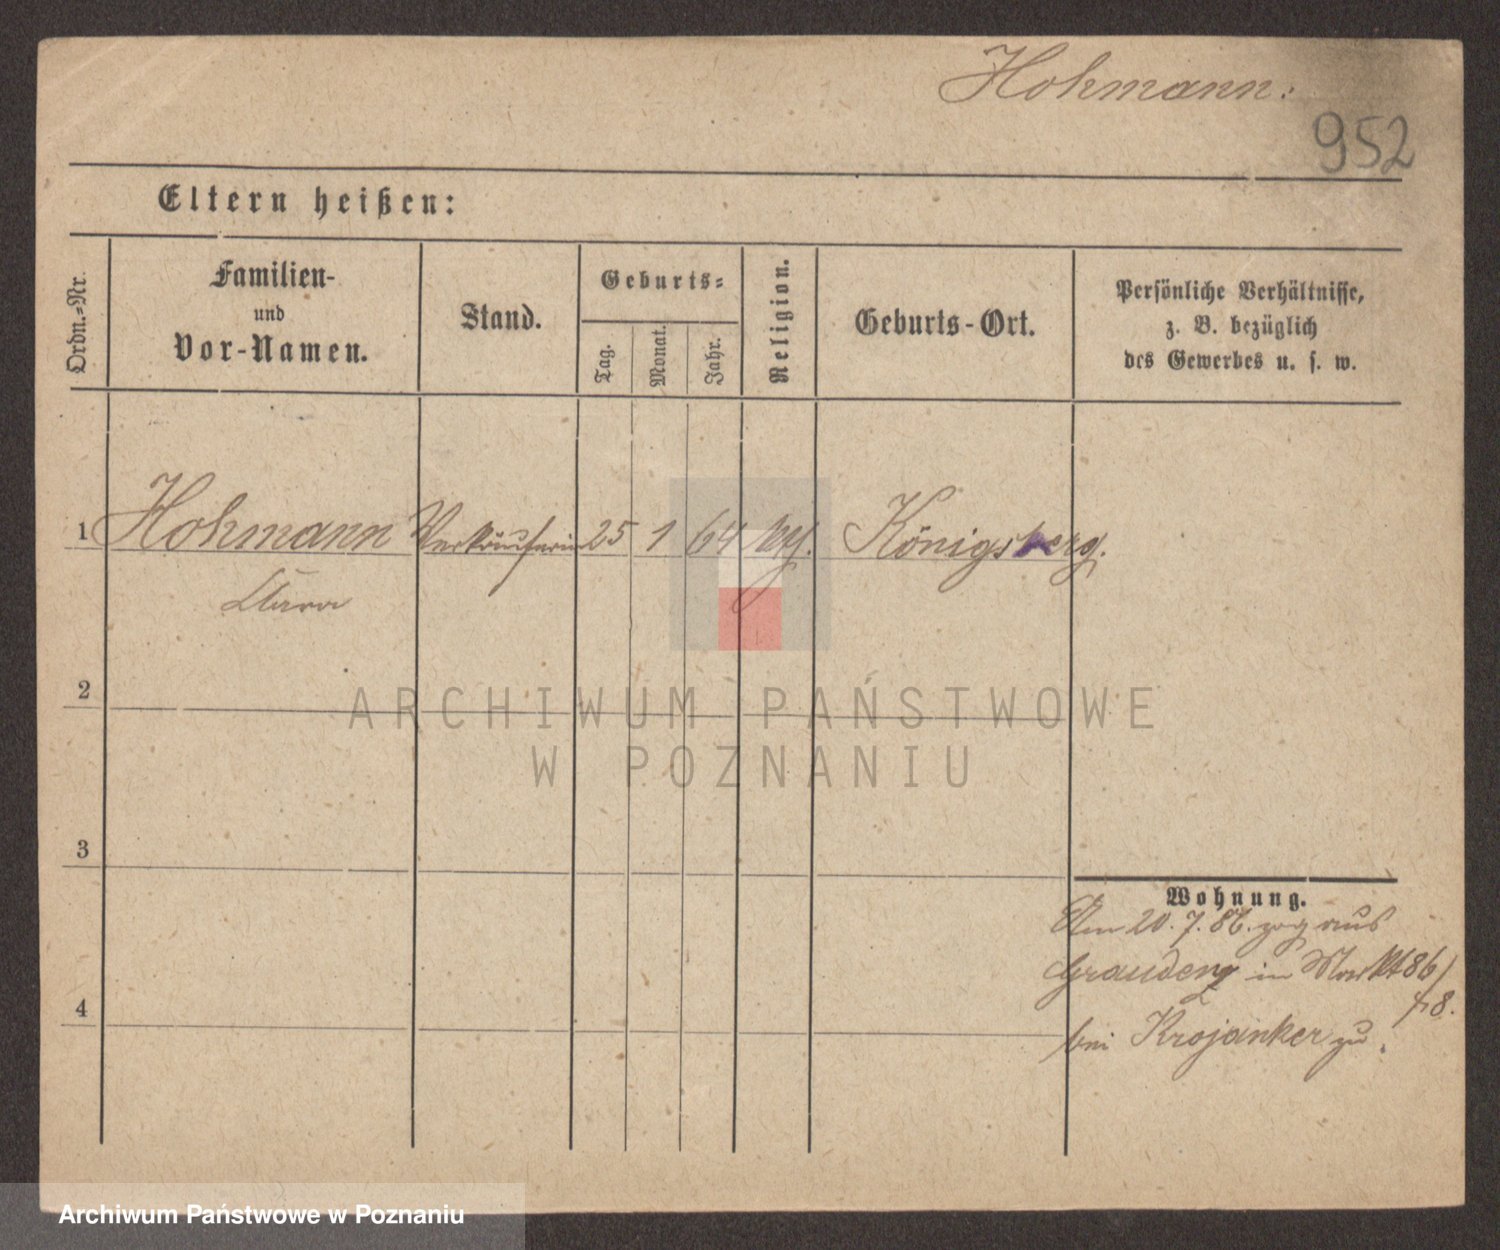 Hohmann.
952
Eltern heißen:
Ordn.-Nr.
Familien-
und
Vor-Namen.
Stand.
Geburts-
Tag.
Monat.
Jahr.
Religion.
Geburts-Ort.
Persönliche Verhältnisse,
z. B. bezüglich
des Gewerbes u. s. w.
1 Hohmann Verkäuferin 25 1 64 Königsberg.
Clara
2
ARCHIWUM PAŃSTWOWE
W POZNANIU
3
Wohnung.
Am 20. 7. 86. zog aus
Graudenz in Markt 86/
78.
4
bei Krojanker zu.
Archiwum Państwowe w Poznaniu